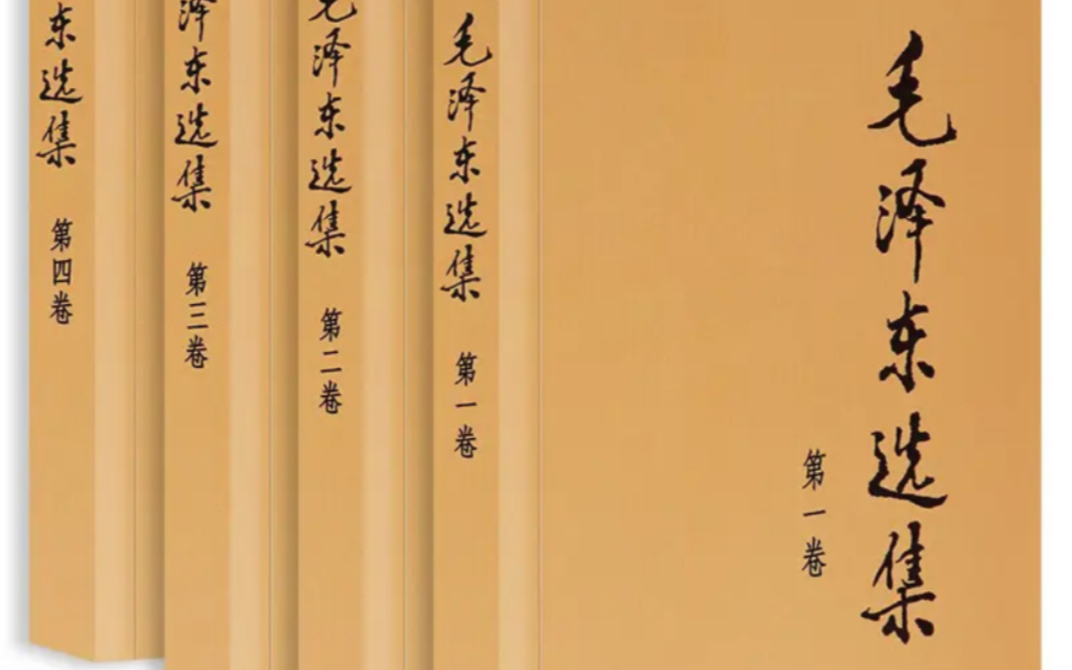 毛泽东选集
第一卷
毛泽东选集 第一卷
毛泽东选集 第二卷
泽东选集 第三卷
东选集 第四卷